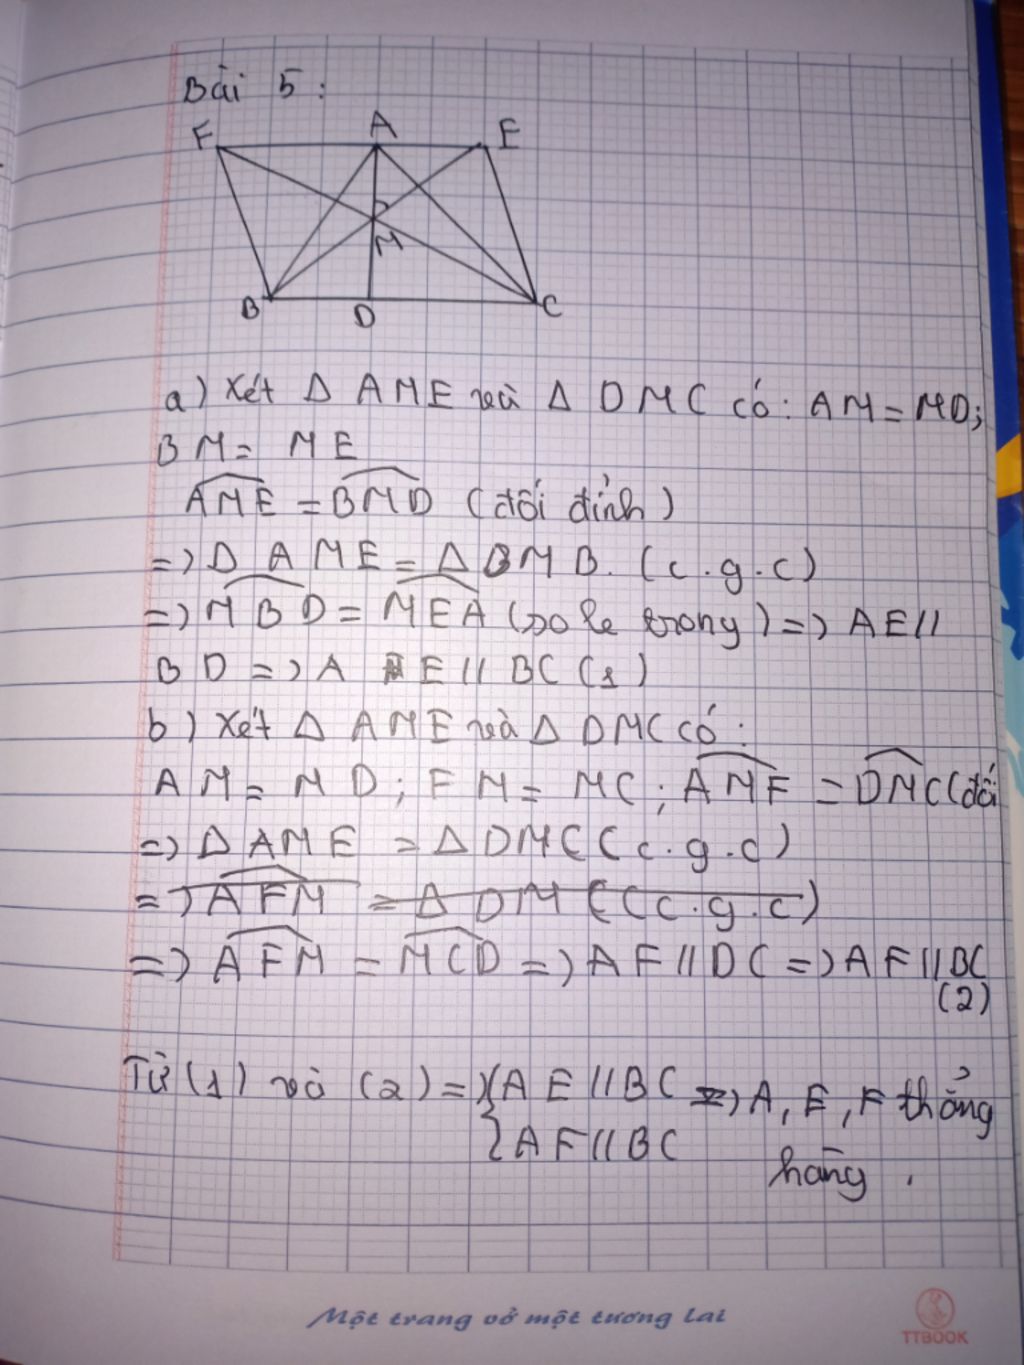 Bài 5 :
F A E
M
B D C
a) Xét Δ AME và Δ DMC có: AM = MD;
BM = ME
AME = BMD (đối đỉnh)
=> Δ AME = Δ DMB. (c.g.c)
=> MBD = MEA (so le trong) => AE //
BD => A E // BC (1)
b) Xét Δ AME và Δ DMC có :
AM = MD ; FM = MC ; AMF = DMC (đối
=> Δ AME = Δ DMC (c.g.c)
=> AFM = Δ DMC (c.g.c)
=> AFM = MCD => AF // DC => AF // BC
(2)
Từ (1) và (2) => { AE // BC => A, E, F thẳng
AF // BC
hàng .
Một trang vở một tương lai
TTBOOK